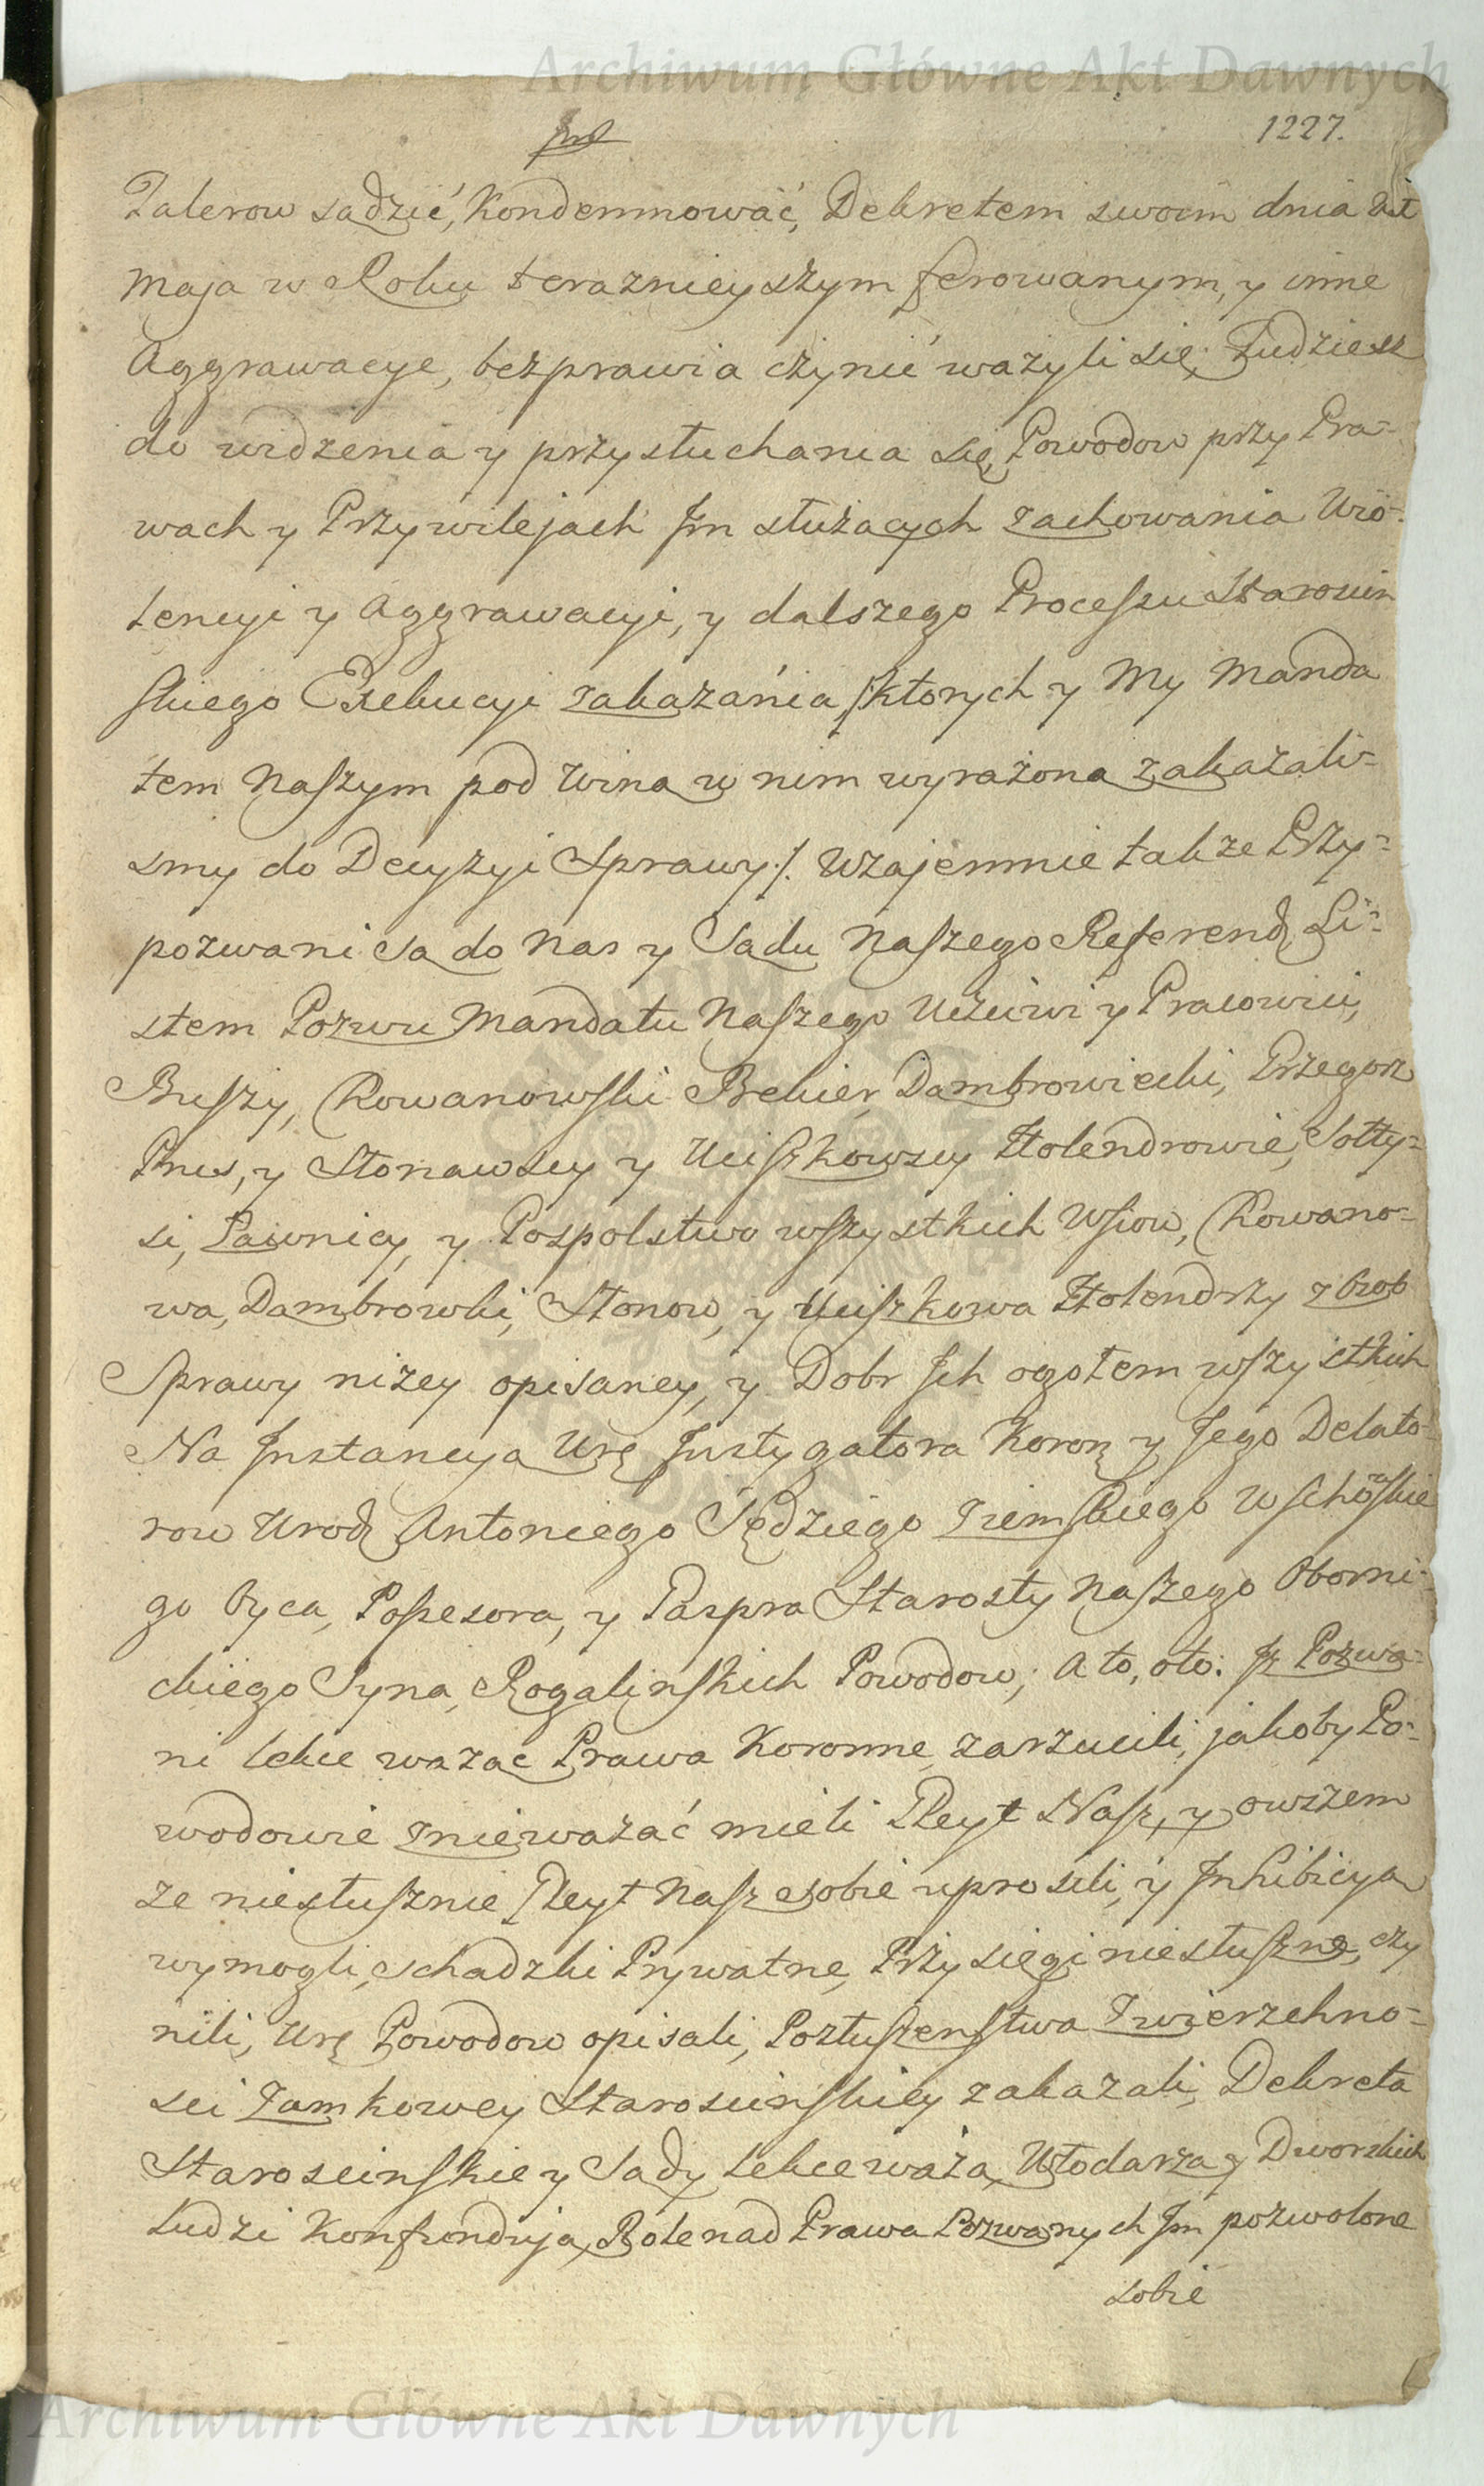 Archiwum Główne Akt Dawnych
1227.
Talerow sądzić, Kondemnować, Dekretem swoim dnia
Maja w Roku terazniejszym ferowanym, y inne
Aggrawacye, bezprawia czynić ważyli się, Tudziesz
do widzenia y przysłuchania się, Powodow przy Pra-
wach y Przywilejach Jm służących zachowania Wio-
lencyi y Aggrawacyi, y dalszego Processu Starościn
skiego Exekucyi zakazania /: ktorych y My Manda
tem Naszym pod winą w nim wyrażoną zakazali-
smy do Decyzyi Sprawy :/. Wzajemnie także Przy-
pozwani są do Nas y Sądu Naszego Referend. Li-
stem Pozwu Mandatu Naszego Uczciwi y Pracowici,
Buszy, Kowanowski Bekier, Dąmbrowiecki, Grzegorz
Prus, y Stonawscy y Uciszkowscy Holendrowie, Sołty-
si, Ławnicy, y Pospolstwo wszystkich Wsiow, Kowano-
wa, Dąmbrowki, Stonow, y Uciszkowa Holendrzy z Osob
Sprawy niżey opisaney, y Dobr Jch ogołem wszystkich
Na Jnstancyą Urę Jnstygatora Koron y Jego Delato-
row Urod Antoniego Sędziego Ziemskiego Wschowskie
go Oyca, Possesora, y Kaspra Starosty Naszego Oborni-
ckiego Syna, Rogalińskich Powodow; A to, oto: Jż Pozwa-
ni lekce ważąc Prawa Koronne zarzucili, jakoby Po-
wodowie znieważać mieli Gleyt Nasz, y owszem
że niesłusznie Gleyt Nasz sobie uprosili, y Jnhibicyą
wymogli, schadzki Prywatne, Przysięgi niesłuszne, czy
nili, Urę Powodow opisali, Posłuszenstwa Zwierzchno-
sci Zamkowey Starościnskiey zakazali, Dekreta
Starościnskie y Sądy lekceważą, Włodarza y Dworskich
Ludzi Konfundują, Role nad Prawa Pozwanych Jm pozwolone
sobie
Archiwum Główne Akt Dawnych